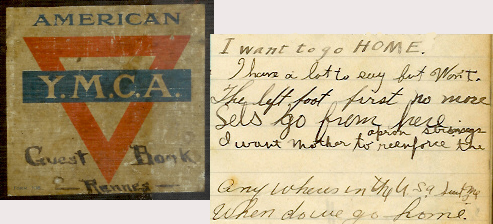 AMERICAN
Y.M.C.A.
Guest Book
Rennes
I want to go HOME.
I have a lot to say but Won't.
The left foot first no more
Lets go from here
apron strings
I want Mother to reenforce the
Any wheres in the U.S.a
When do we go home.